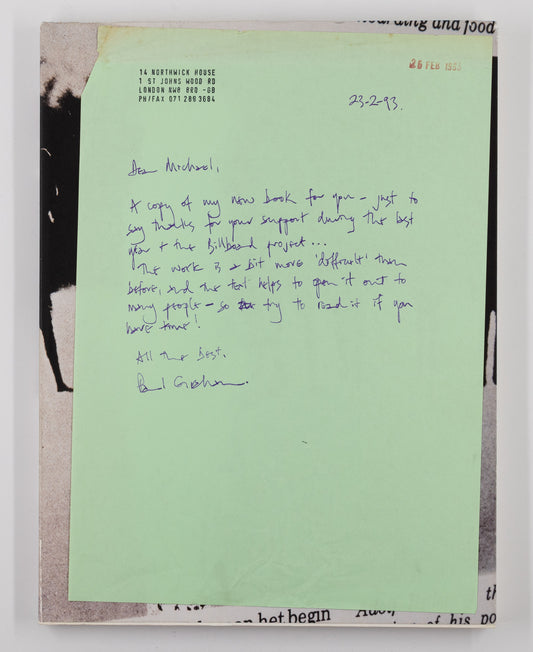 hoarding and food
14 NORTHWICK HOUSE
1 ST JOHNS WOOD RD
LONDON NW8 8RD -GB
PH/FAX 071 289 3684
26 FEB 1993
23-2-93.
Dear Michael,
A copy of my new book for you - just to
say thanks for your support during the last
year + the Billboard project...
The work is a bit more 'difficult' than
before, and the text helps to open it out to
many people - so try to read it if you
have time!
All the Best.
Paul Graham.
het begin
of his po